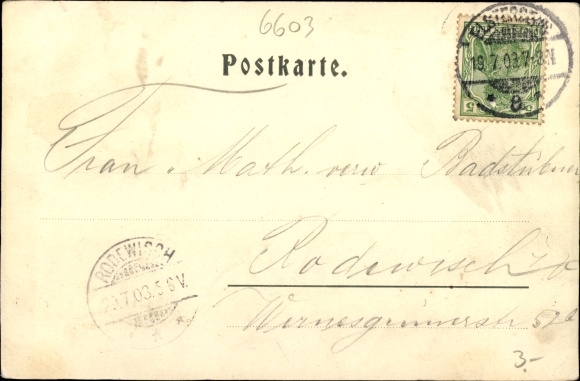 6603
Postkarte.
19.7.03.7-8N
5
Frau Math. verw Badstübner
Rodewisch
RODEWISCH
20.7.03.5-6V.
Wernesgrünerstr
3.-